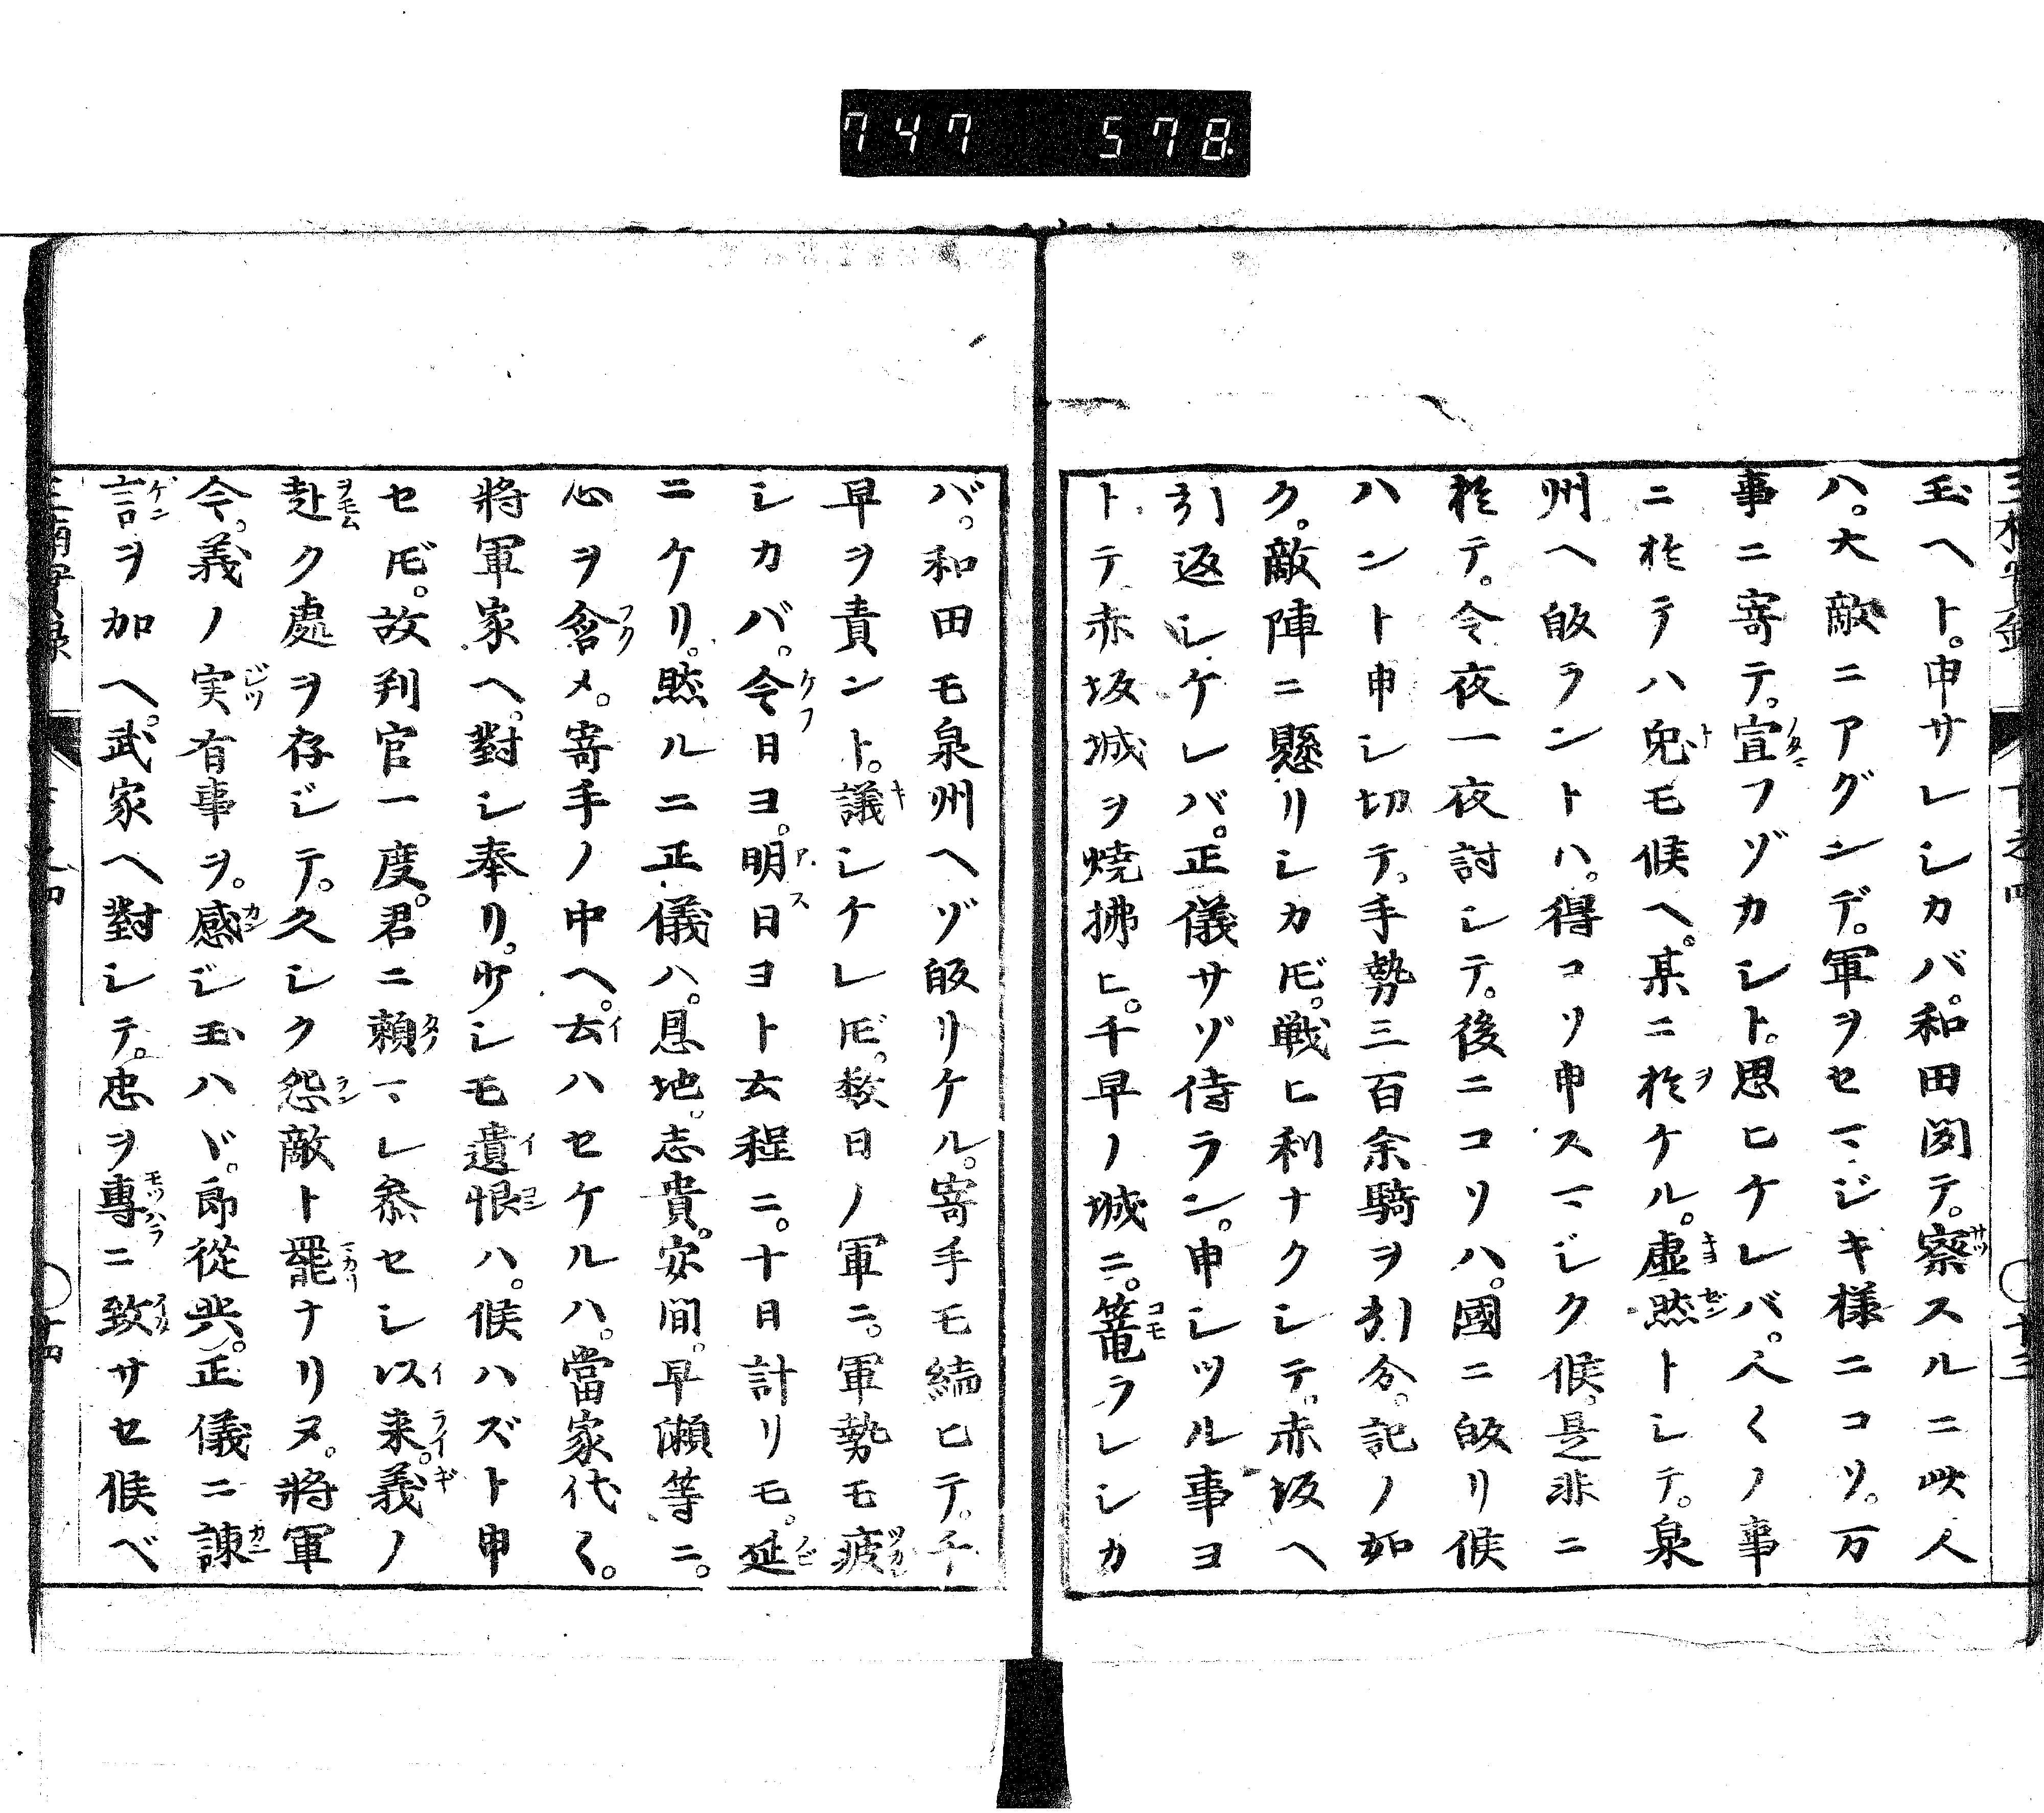 747 578.
玉ヘト。申サレシカバ。和田聞テ。察スルニ此人
ハ。大敵ニアグンデ。軍ヲセマジキ様ニコソ。万
事ニ寄テ。宣フゾカシト。思ヒケレバ。人〱ノ事
ニ於テハ兎モ候ヘ。某ニ於ケル。虚然トシテ。泉
州ヘ皈ラントハ。得コソ申スマジク候。是非ニ
於テ。今夜一夜討シテ。後ニコソハ。國ニ皈リ候
ハント申シ切テ。手勢三百余騎ヲ引分。記ノ如
ク。敵陣ニ懸リシカ𪜈。戦ヒ利ナクシテ。赤坂ヘ
引返シケレバ。正儀サゾ侍ラン。申シツル事ヨ
トテ。赤坂城ヲ焼拂ヒ。千早ノ城ニ。篭ラレシカ
バ。和田モ泉州ヘゾ皈リケル。寄手モ續ヒテ。千
早ヲ責ント。議シケレ𪜈。数日ノ軍ニ。軍勢モ疲
シカバ。今日ヨ。明日ヨト云程ニ。十日計リモ。延
ニケリ。然ルニ正儀ハ。恩地。志貴。安間。早瀬等ニ。
心ヲ含メ。寄手ノ中ヘ。云ハセケルハ。當家代〱。
將軍家ヘ。對シ奉リ。少シモ遺恨ハ。候ハズト申
セ𪜈。故判官一度。君ニ頼マレ参セシ以来。義ノ
赴ク處ヲ存ジテ。久シク怨敵ト罷ナリヌ。將軍
今。義ノ実有事ヲ。感ジ玉ハヾ。郎從共。正儀ニ諌
言ヲ加ヘ。武家ヘ對シテ。忠ヲ專ニ致サセ候ベ